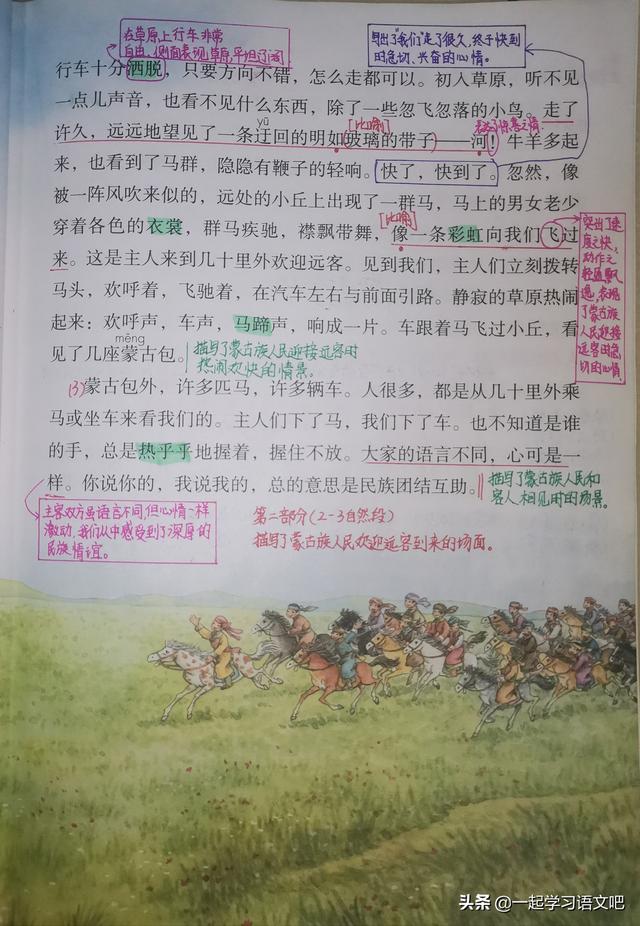 在草原上行车非常
自由,侧面表现草原平坦辽阔
写出了"我们"走了很久,终于快到
时急切、兴奋的心情。
行车十分洒脱，只要方向不错，怎么走都可以。初入草原，听不见
一点儿声音，也看不见什么东西，除了一些忽飞忽落的小鸟。走了
[比喻]
表达了惊喜之情
yū
许久，远远地望见了一条迂回的明如玻璃的带子——河！牛羊多起
来，也看到了马群，隐隐有鞭子的轻响。快了，快到了。忽然，像
被一阵风吹来似的，远处的小丘上出现了一群马，马上的男女老少
[比喻]
穿着各色的衣裳，群马疾驰，襟飘带舞，像一条彩虹向我们飞过
来。这是主人来到几十里外欢迎远客。见到我们，主人们立刻拨转
马头，欢呼着，飞驰着，在汽车左右与前面引路。静寂的草原热闹
起来：欢呼声，车声，马蹄声，响成一片。车跟着马飞过小丘，看
měng
见了几座蒙古包。
突出了速
度之快,
动作之
轻盈飘
逸,表现
了蒙古族
人民迎接
远客时急
切的心情。
描写了蒙古族人民迎接远客时
热闹欢快的情景。
(3)蒙古包外，许多匹马，许多辆车。人很多，都是从几十里外乘
马或坐车来看我们的。主人们下了马，我们下了车。也不知道是谁
的手，总是热乎乎地握着，握住不放。大家的语言不同，心可是一
样。你说你的，我说我的，总的意思是民族团结互助。
描写了蒙古族人民和
客人相见时的场景。
主客双方虽语言不同,但心情一样
激动,我们从中感受到了深厚的
民族情谊。
第二部分(2-3自然段)
描写了蒙古族人民欢迎远客到来的场面。
头条 @一起学习语文吧